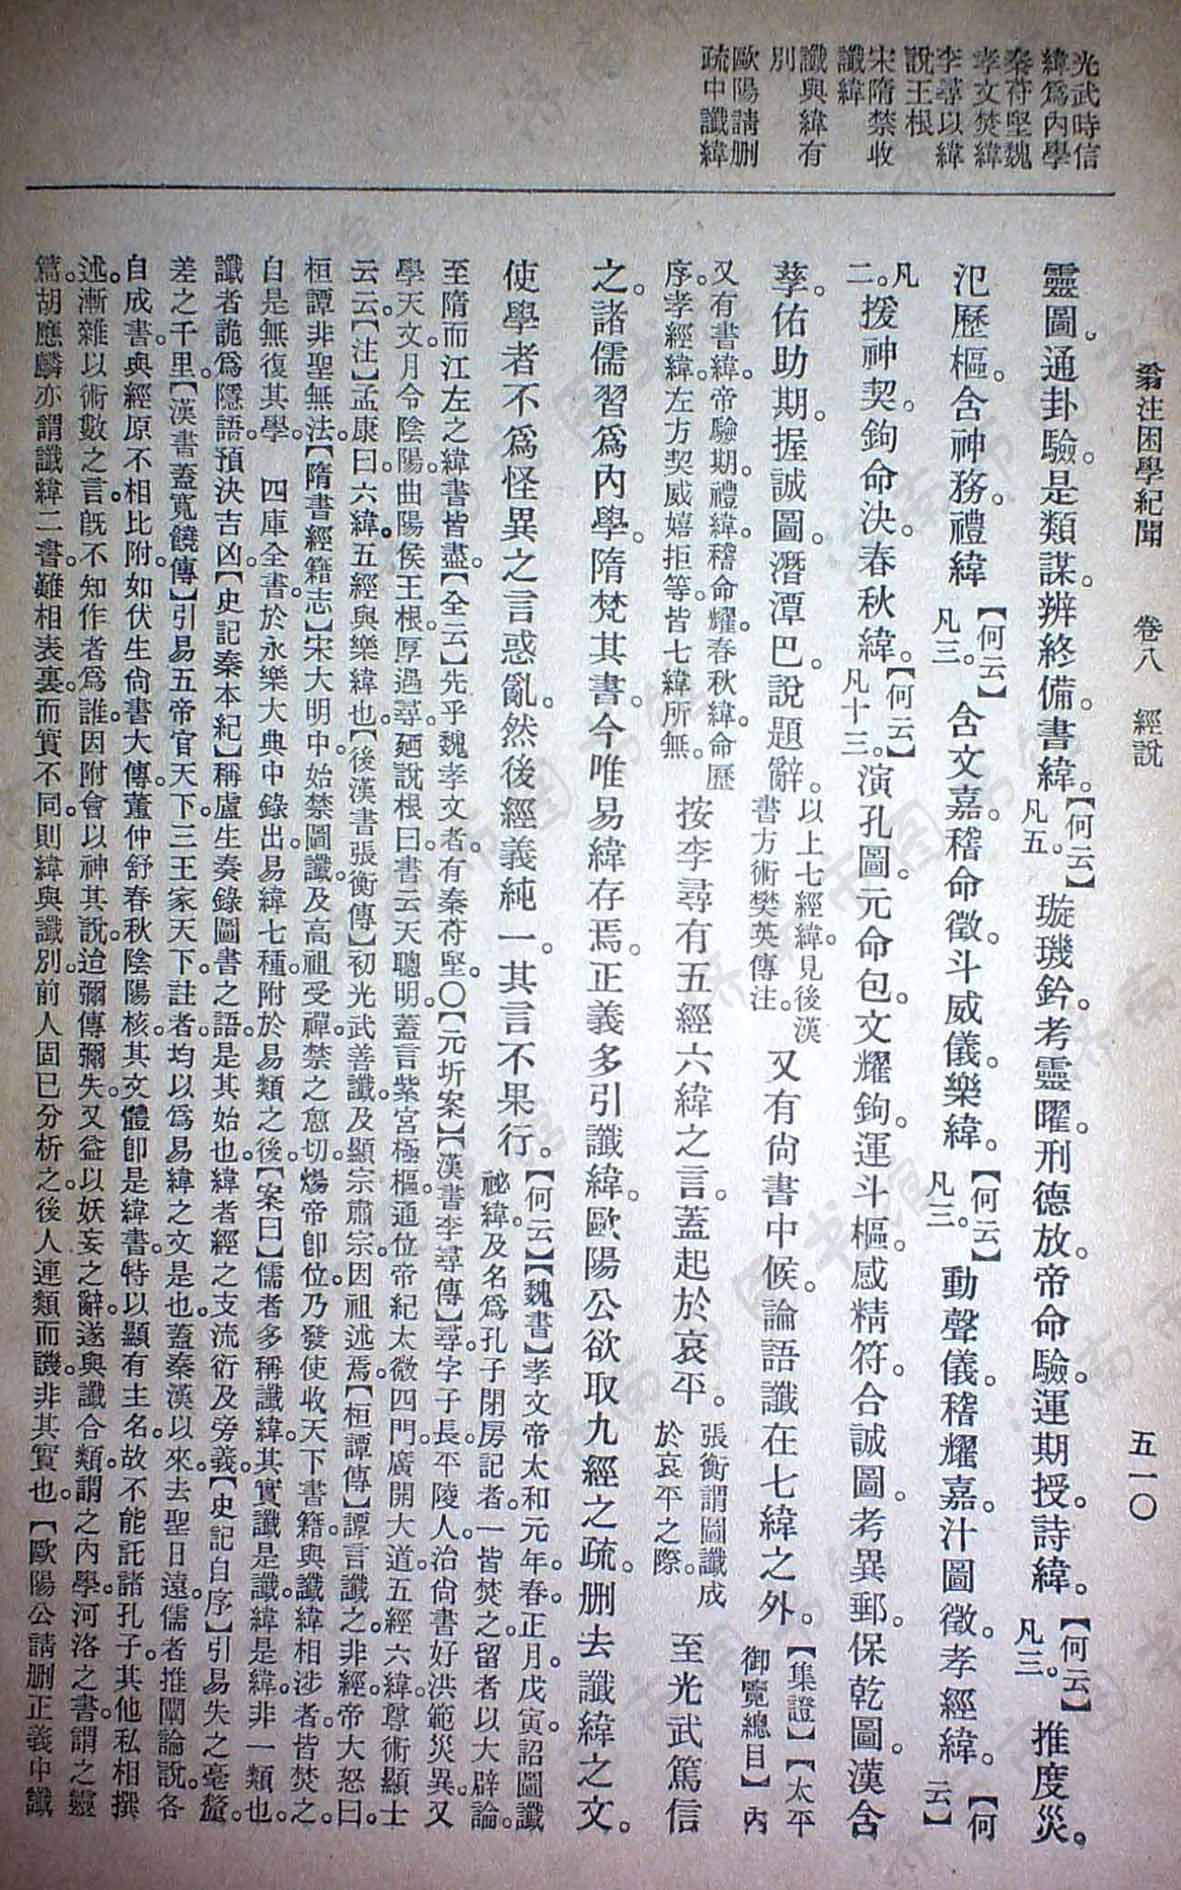 光武時信
緯爲內學
秦苻堅魏
孝文焚緯
李尋以緯
說王根
宋隋禁收
讖緯
讖與緯有
別
歐陽請刪
疏中讖緯
翁注困學紀聞 卷八 經說 五一〇
靈圖。通卦驗。是類謀。辨終備。書緯。【何云】凡五。璇璣鈐。考靈曜。刑德放。帝命驗。運期授。詩緯。【何云】凡三。推度災。
氾歷樞。含神務。禮緯【何云】凡三。含文嘉。稽命徵。斗威儀。樂緯。【何云】凡三。動聲儀。稽耀嘉。汁圖徵。孝經緯。【何云】
凡二。援神契。鉤命決。春秋緯。【何云】凡十三。演孔圖。元命包。文耀鉤。運斗樞。感精符。合誠圖。考異郵。保乾圖。漢含
孳。佑助期。握誠圖。潛潭巴。說題辭。以上七經緯。見後漢書方術樊英傳注。又有尙書中候。論語讖在七緯之外。【集證】【太平御覽總目】內
又有書緯。帝驗期。禮緯。稽命耀。春秋緯。命歷序。孝經緯。左方契。威嬉拒等。皆七緯所無。按李尋有五經六緯之言。蓋起於哀平。張衡謂圖讖成於哀平之際。至光武篤信
之。諸儒習爲內學。隋焚其書。今唯易緯存焉。正義多引讖緯。歐陽公欲取九經之疏。刪去讖緯之文。
使學者不爲怪異之言惑亂。然後經義純一。其言不果行。【何云】【魏書】孝文帝太和元年。春。正月。戊寅。詔圖讖祕緯。及名爲孔子閉房記者。一皆焚之。留者以大辟論。
至隋而江左之緯書皆盡。【全云】先乎魏孝文者。有秦苻堅。〇【元圻案】【漢書李尋傳】尋字子長。平陵人。治尙書。好洪範災異。又
學天文月令陰陽。曲陽侯王根。厚遇尋。廼說根曰。書云天聰明。蓋言紫宮極樞。通位帝紀。太微四門。廣開大道。五經六緯。尊術顯士
云云。【注】孟康曰。六緯。五經與樂緯也。【後漢書張衡傳】初光武善讖。及顯宗肅宗。因祖述焉。【桓譚傳】譚言讖之非經。帝大怒曰。
桓譚非聖無法。【隋書經籍志】宋大明中。始禁圖讖。及高祖受禪。禁之愈切。煬帝卽位。乃發使收天下書籍。與讖緯相涉者。皆焚之。
自是無復其學。 四庫全書。於永樂大典中錄出。易緯七種。附於易類之後。【案曰】儒者多稱讖緯。其實讖是讖。緯是緯。非一類也。
讖者詭爲隱語。預決吉凶。【史記秦本紀】稱盧生奏錄圖書之語。是其始也。緯者經之支流。衍及旁義。【史記自序】引易失之毫釐。
差之千里。【漢書蓋寬饒傳】引易五帝官天下。三王家天下。註者均以爲易緯之文是也。蓋秦漢以來。去聖日遠。儒者推闡論說。各
自成書。與經原不相比附。如伏生尙書大傳。董仲舒春秋陰陽。核其文體。卽是緯書。特以顯有主名。故不能託諸孔子。其他私相撰
述。漸雜以術數之言。旣不知作者爲誰。因附會以神其說。迨彌傳彌失。又益以妖妄之辭。遂與讖合類。謂之內學。河洛之書。謂之靈
篇。胡應麟亦謂讖緯二書。雖相表裏。而實不同。則緯與讖別。前人固已分析之。後人連類而譏。非其實也。【歐陽公請刪正義中讖